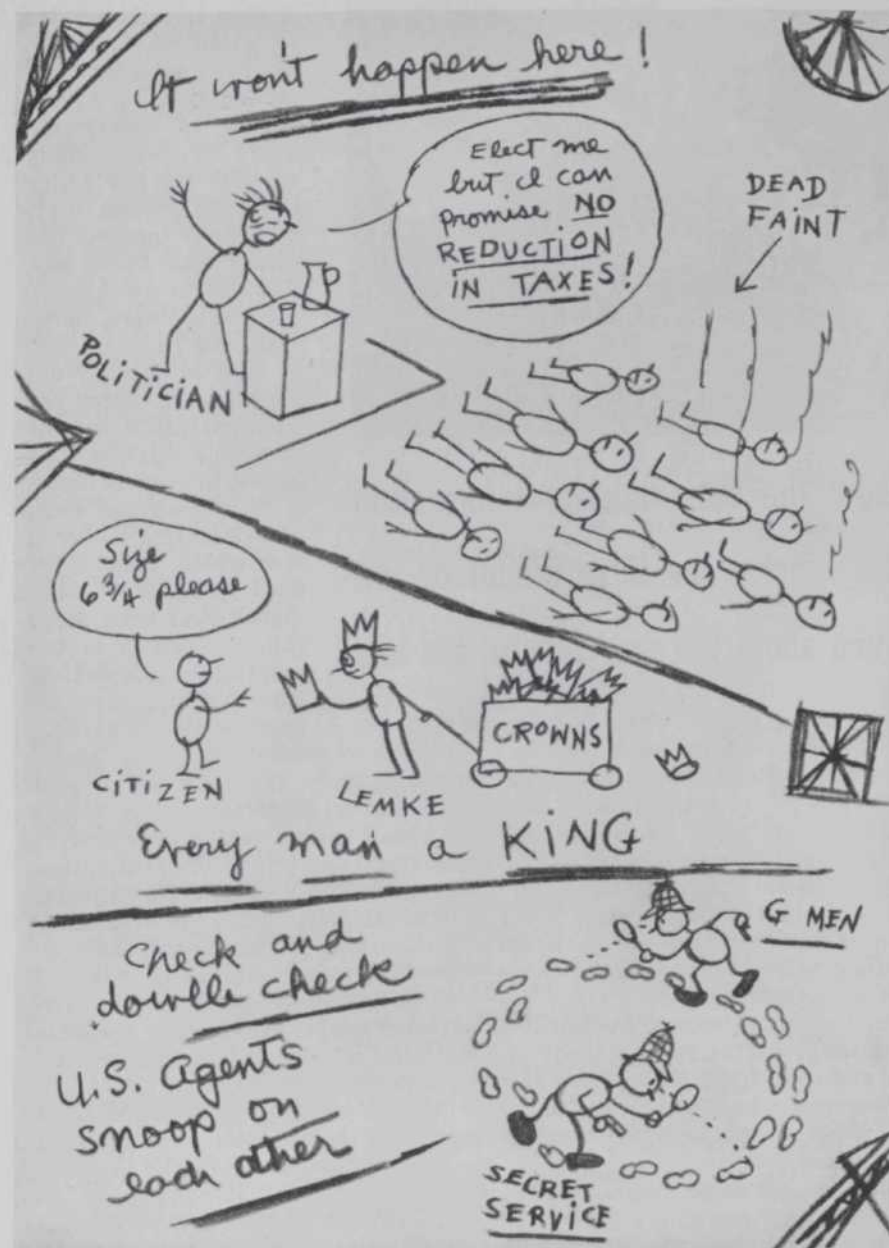 It won't happen here!
Elect me
but I can
promise NO
REDUCTION
IN TAXES!
DEAD
FAINT
POLITICIAN
Size
6 3/4 please
CITIZEN
LEMKE
CROWNS
Every man a KING
Check and
double check
U.S. Agents
snoop on
each other
G MEN
SECRET
SERVICE